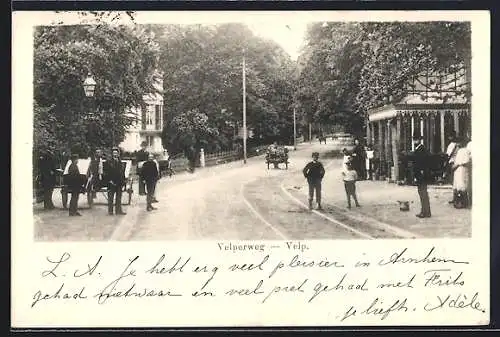 Velperweg — Velp.
L. A. Je hebt erg veel pleisier in Arnhem
gehad niet waar en veel pret gehad met Frits
je liefh. Adèle.